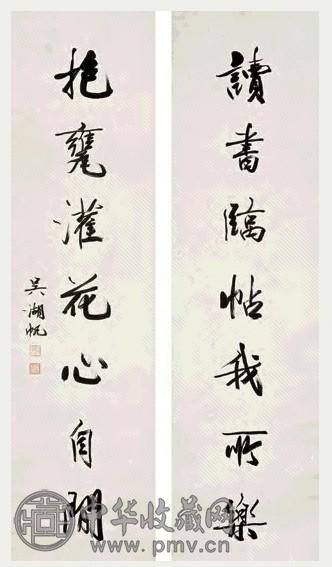 讀書臨帖我所樂
抱甕灌花心自閒
吳湖帆
中华收藏网
www.pmv.cn